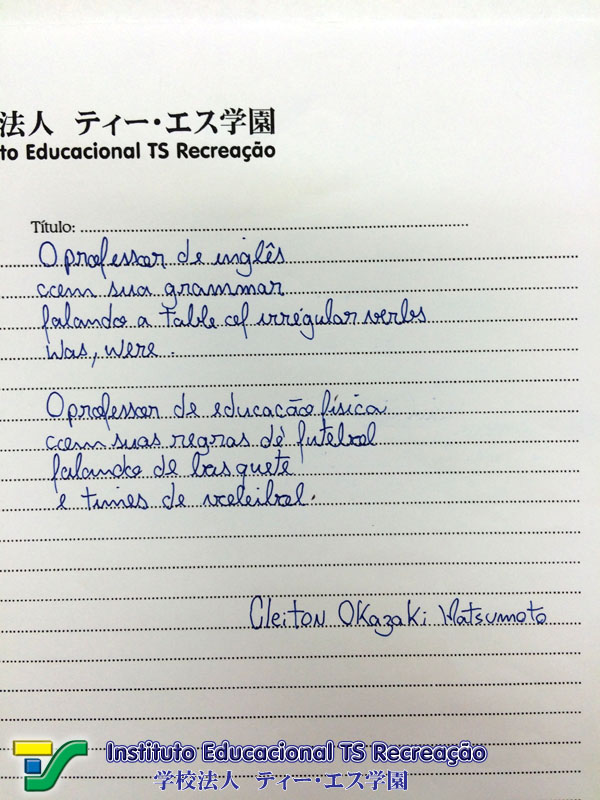 法人 ティー・エス学園
to Educacional TS Recreação
Título:
O professor de inglês
com sua grammar
falando a table of irregular verbs
was, were.
O professor de educação física
com suas regras de futebol
falando de basquete
e times de voleibol.
Cleiton Okazaki Matsumoto
Instituto Educacional TS Recreação
学校法人 ティー・エス学園